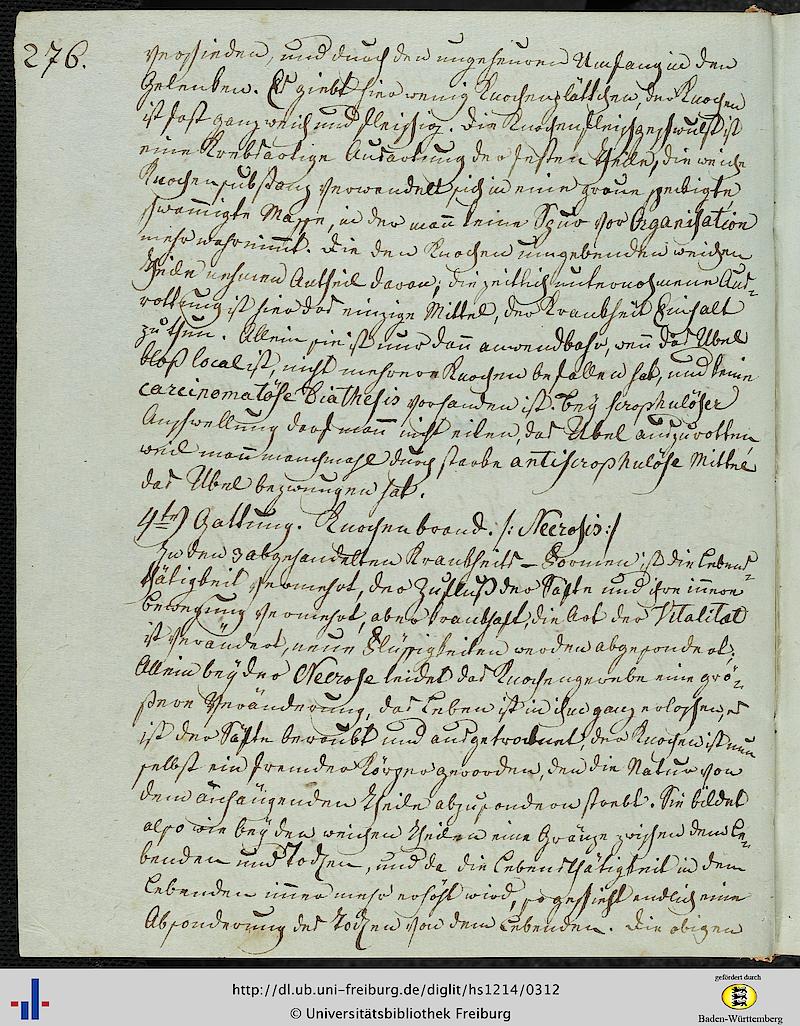 276.
verschieden, und durch den ungeheuren Umfang in den
Gelenken. Es giebt hier wenig Knochenplättchen, der Knochen
ist fast ganz weich und fleischig. Die Knochenfleischgeschwulst ist
eine Krebsartige Ausartung der festen Theile, die weiche
Knochensubstanz verwandelt sich in eine graue speckigte,
schwammigte Masse, in der man keine Spur vor Organisation
mehr wahrnimmt. Die den Knochen umgebenden weichen
Theile nehmen Antheil daran; die zeitlich unternohmene Aus=
rottung ist hier das einzige Mittel, der Krankheit Einhalt
zu thun. Allein sie ist nur dann anwendbahr, wenn das Übel
bloß local ist, nicht mehrere Knochen befallen hat, und keine
carcinomatöse Diathesis vorhanden ist. Bey scrophulöser
Anschwellung darf man nicht eilen, das Übel auszurotten,
weil man manchmahl durch starke antiscrophulöse Mittel
das Übel bezwungen hat.
4te) Gattung. Knochenbrand. /: Necrosis :/
In den 3 abgehandelten Krankheits-Formen ist die Lebens=
thätigkeit vermehrt, der Zufluß der Säfte und ihre innere
Bewegung vermehrt, aber krankhaft, die Art der Vitalität
ist verändert, neue Flüssigkeiten werden abgesondert;
Allein bey der Necrose leidet das Knochengewebe eine grö=
ßere Veränderung, das Leben ist in ihm ganz erloschen, es
ist der Säfte beraubt und ausgetrocknet, der Knochen ist nun
selbst ein fremder Körper geworden, den die Natur von
dem anhängenden Theile abzusondern strebt. Sie bildet
also wie bey den weichen Theilen eine Gränze zwischen dem Le=
benden und Todten, und da die Lebensthätigkeit in dem
Lebenden immer mehr erhöht wird, so geschieht endlich eine
Absonderung des Todten von dem Lebenden. Die obigen
http://dl.ub.uni-freiburg.de/diglit/hs1214/0312
© Universitätsbibliothek Freiburg
gefördert durch
Baden-Württemberg